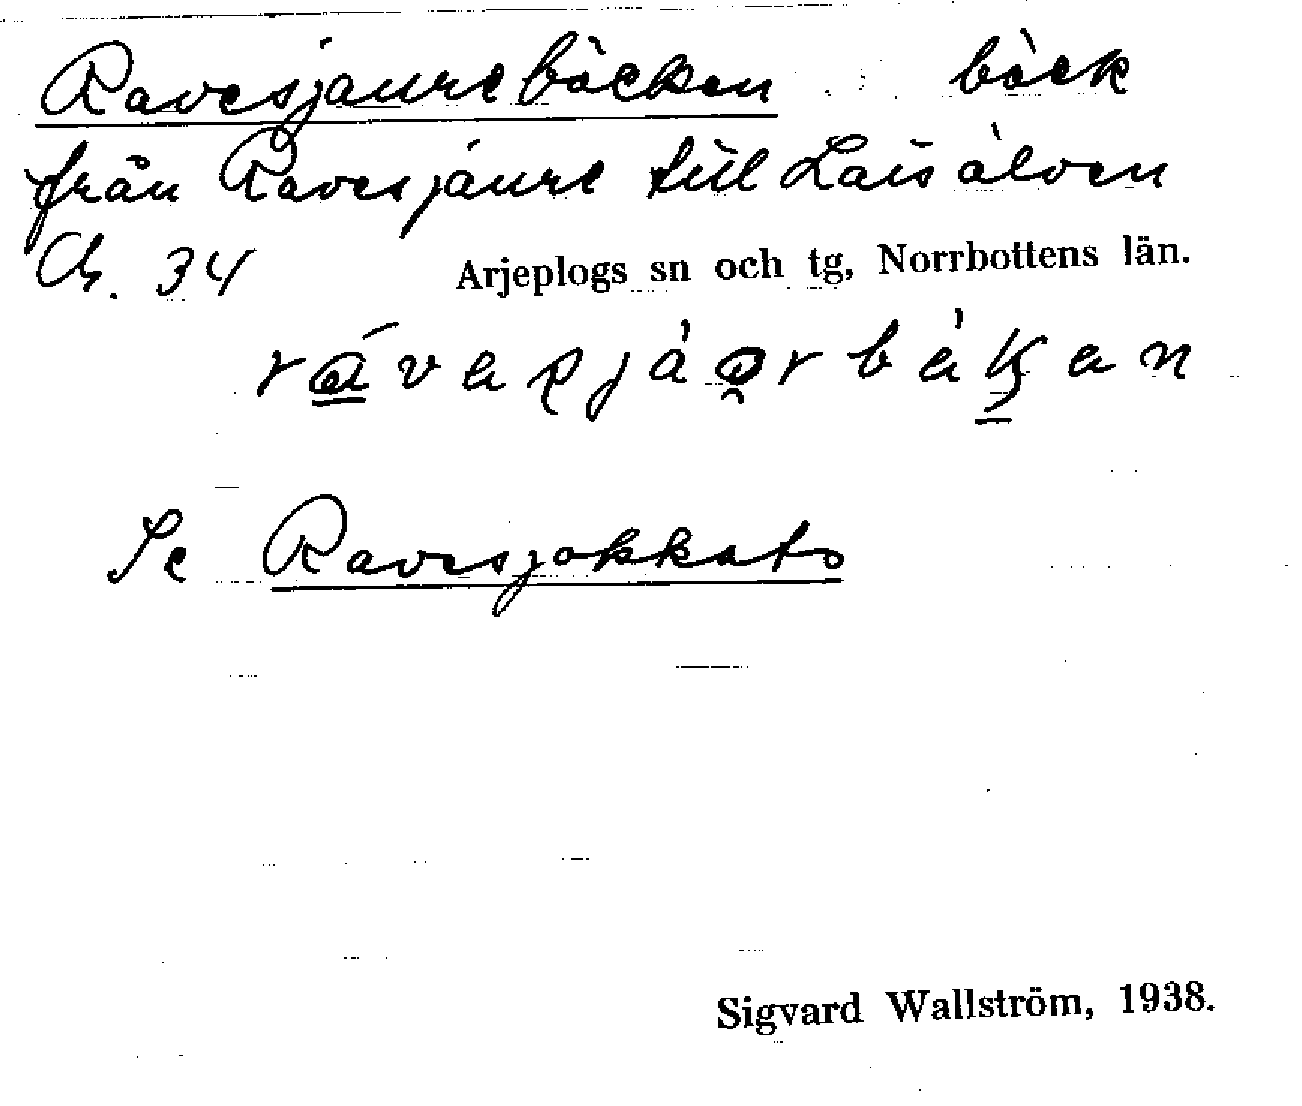 Ravesjaurebäcken bäck
från Ravesjaure till Laisälven
Ch. 34 Arjeplogs sn och tg, Norrbottens län.
Se Ravesjokkats
Sigvard Wallström, 1938.